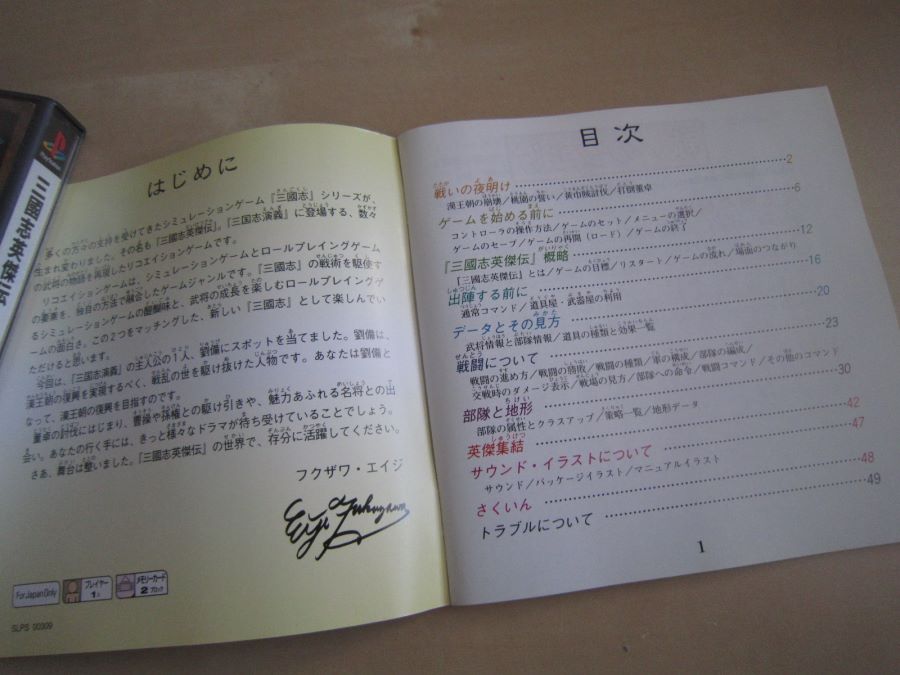 三國志英傑伝
はじめに
多くの方々の支持を受けてきたシミュレーションゲーム『三國志』シリーズが、
生まれ変わりました。その名も『三國志英傑伝』。『三国志演義』に登場する、数々
の武将の物語を再現したリコエイションゲームです。
リコエイションゲームは、シミュレーションゲームとロールプレイングゲーム
の要素を、独自の方法で融合したゲームジャンルです。『三國志』の戦術を駆使す
るシミュレーションゲームの醍醐味と、武将の成長を楽しむロールプレイングゲ
ームの面白さ。この2つをマッチングした、新しい『三國志』として楽しんでい
ただけると思います。
今回は、『三国志演義』の主人公の1人、劉備にスポットを当てました。劉備は、
漢王朝の復興を実現するべく、戦乱の世を駆け抜けた人物です。あなたは劉備と
なって、漢王朝の復興を目指すのです。
董卓の討伐にはじまり、曹操や孫権との駆け引きや、魅力あふれる名将との出
会い。あなたの行く手には、きっと様々なドラマが待ち受けていることでしょう。
さあ、舞台は整いました。『三國志英傑伝』の世界で、存分に活躍してください。
フクザワ・エイジ
Eiji Fukuzawa
For Japan Only
プレイヤー
1人
メモリーカード
2ブロック
SLPS 00309
目次
戦いの夜明け 2
漢王朝の崩壊/桃園の誓い/黄巾賊討伐/打倒董卓
ゲームを始める前に 6
コントローラの操作方法/ゲームのセット/メニューの選択/
ゲームのセーブ/ゲームの再開(ロード)/ゲームの終了
『三國志英傑伝』概略 12
『三國志英傑伝』とは/ゲームの目標/リスタート/ゲームの流れ/場面のつながり
出陣する前に 16
通常コマンド/道具屋・武器屋の利用
データとその見方 20
武将情報と部隊情報/道具の種類と効果一覧
戦闘について 23
戦闘の進め方/戦闘の勝敗/戦闘の種類/軍の構成/部隊の編成/
交戦時のダメージ表示/戦場の見方/部隊への命令/戦闘コマンド/その他のコマンド
部隊と地形 30
部隊の属性とクラスアップ/策略一覧/地形データ
英傑集結 42
サウンド・イラストについて 47
サウンド/パッケージイラスト/マニュアルイラスト
さくいん 48
トラブルについて 49
1